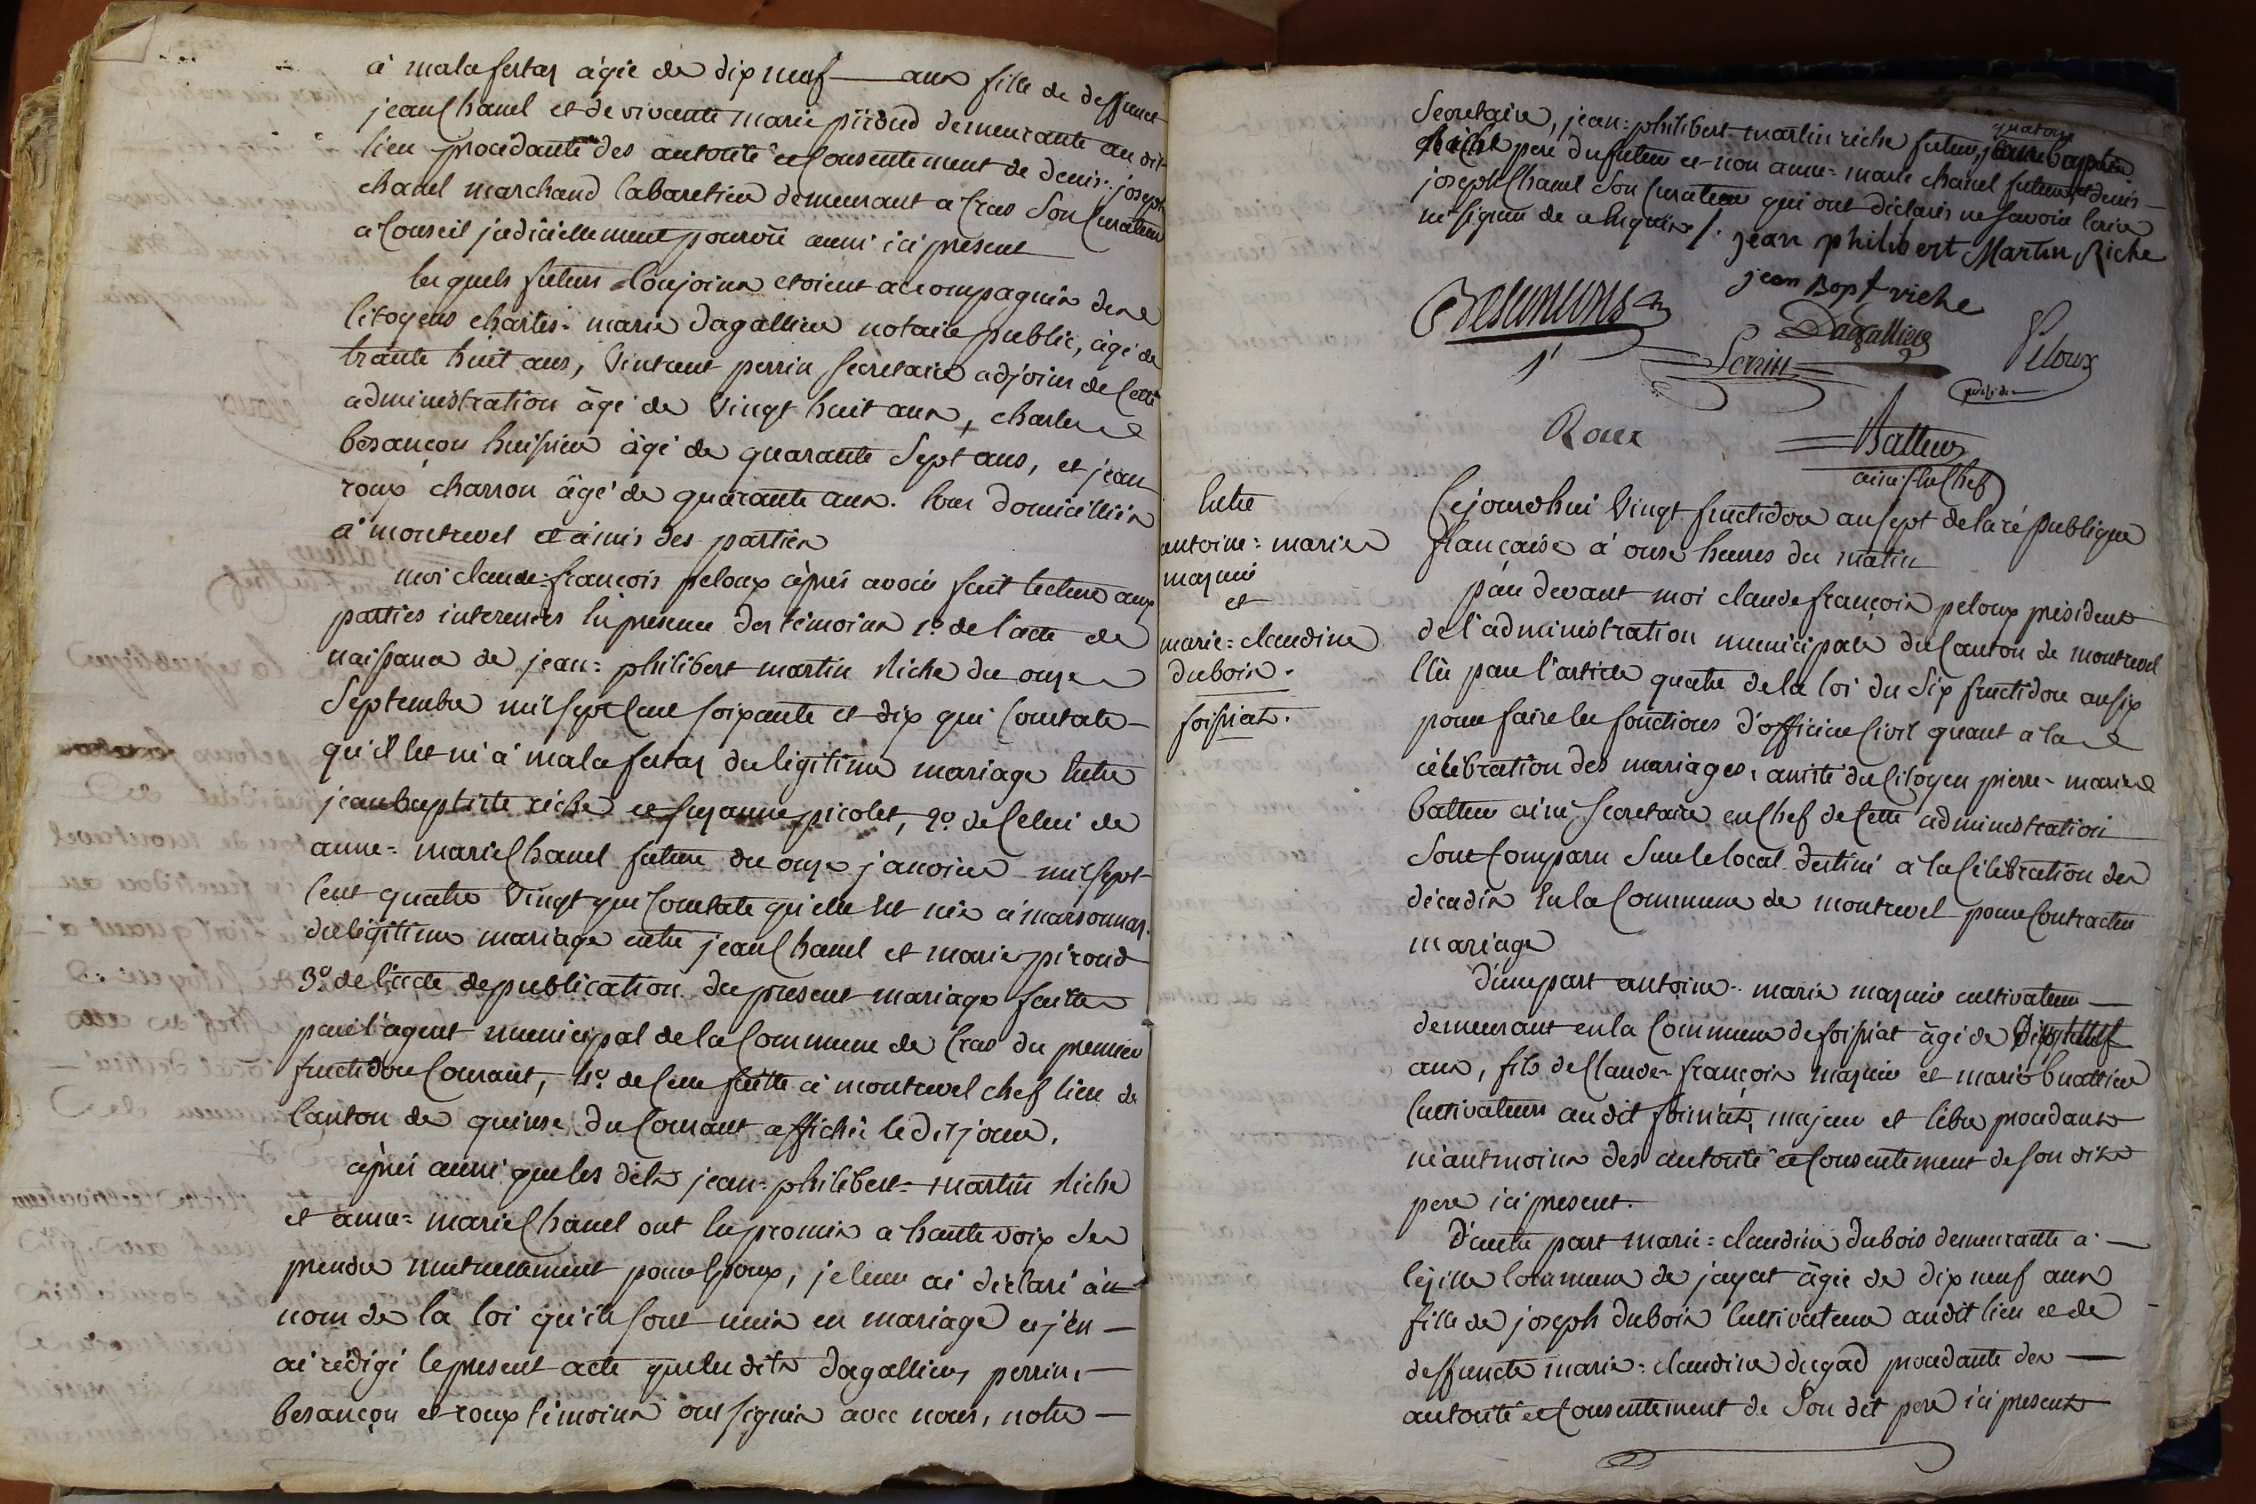 à malafertas agée de dix neuf — ans fille de deffunct
jean Chanel et de vivante marie piroud demeurante au dit
lieu procédante des autorité et Consentement de denis-joseph
chanel marchand Cabaretier demeurant a Cras Son Curateur
a Conseil judiciellement pourvu aussi ici présent
lesquels futurs Conjoins etoient accompagnés des
Citoyens charles-marie dagallier notaire public, âgé de
trante huit ans, Vintent perrin Secretaire adjoins de Cette
administration âgé de Vingt huit ans, charles
besançon huissier âgé de quarante Sept ans, et jean
roux charron âgé de quarante ans. tous domiciliés
à montrevel et amis des parties
moi claude-françois peloux après avoir fait lecture aux
parties interessées En présence des témoins 1º. de l'acte de
naissance de jean=philibert martin Riche du onze
Septembre mil Sept Cent soixante et dix qui Constate—
qu'il Est né à malafertas du légitime mariage Entre
jean baptiste riche et suzanne picolet, 2º. de Celui de
anne=marie Chanel future du onze janvier mil Sept
Cent quatre Vingt qui Constate qu'elle Est née à marsonnas
du légitime mariage entre jean Chanel et marie piroud
3º. de l'acte de publication du présent mariage faitte
par l'agent municipal de la Commune de Cras du premier
fructidor Courant, 4º. de Celle faitte à montrevel chef lieu de
Canton de quinse du Courant affiché le dit jour.
après aussi que les dits jean=philibert=martin Riche
et anne=marie Chanel ont Eu promis a haute voix se
prendre mutuellement pour Epoux, je leur ai déclaré au
nom de la loi qu'ils Sont unis en mariage et j'en—
ai rédigé le présent acte que les dits dagallier, perrin,—
besançon et roux témoins ont signés avec nous, notre—
Secretaire, jean=philibert=martin riche futur, jean baptiste
Riche pere du futur et non anne=marie chanel future, et denis—
joseph Chanel Son Curateur qui ont déclarés ne Savoir Ecrire
ni signer de ce Enquis /. jean philibert Martin Riche
jean Bapt riche
Besançon
Dagallier
Perrin
Peloux
président
Roux
Batteur
ainé S.re en Chef
Entre
antoine=marie
maznié
et
marie=claudine
dubois.
foissiat.
Cejourdhui Vingt fructidor an Sept de la république
française à onse heures du matin
par devant moi claude françois peloux président
de l'administration municipale du Canton de montrevel
Elû par l'article quatre de la loi du Six fructidor an Six
pour faire les fonctions d'officier Civil quant a la
célébration des mariages, assisté du Citoyen pierre-marie
batteur ainé Secretaire en Chef de Cette administration
Sont Comparu Sur le local destiné à la Célébration des
décadis En la Commune de montrevel pour Contracter
mariage
d'une part antoine-marie maznié cultivateur—
demeurant en la Commune de foissiat âgé de
ans, fils de Claude-françois maznié et marie buattier
Cultivateurs audit foissiat, majeur et libre procédant
néantmoins des autorité et Consentement de son dit
pere ici présent.
D'autre part marie=claudine dubois demeurante a—
Commune de jayat âgée de dix neuf ans
fille de joseph dubois Cultivateur audit lieu et de
deffuncte marie=claudine dugad procédante des—
autorité et Consentement de Son dit pere ici présent